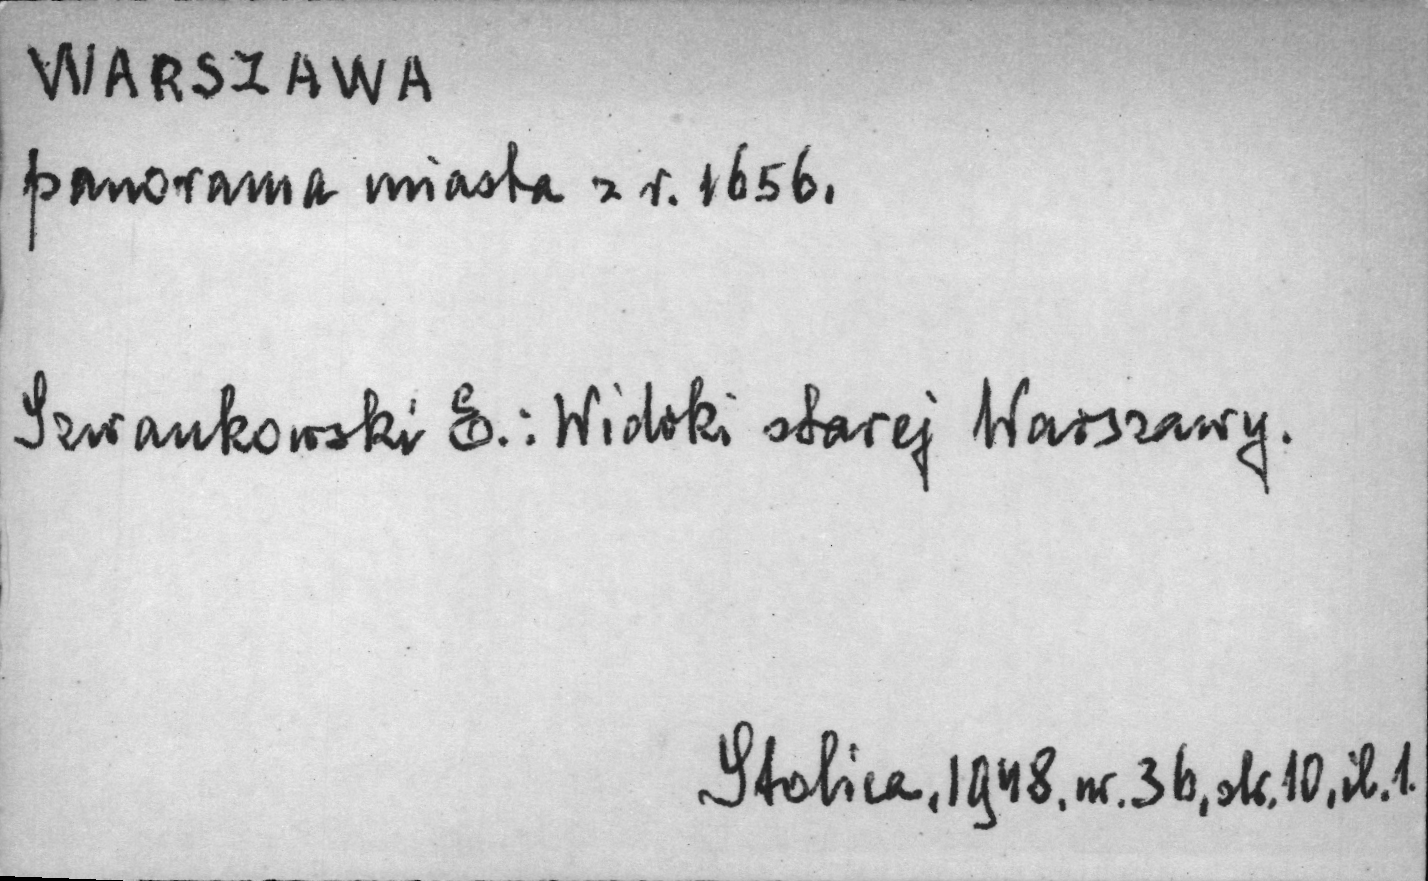 WARSZAWA
panorama miasta z r. 1656.
Szwankowski E.: Widoki starej Warszawy.
Stolica, 1948, nr. 36, str. 10, il. 1.